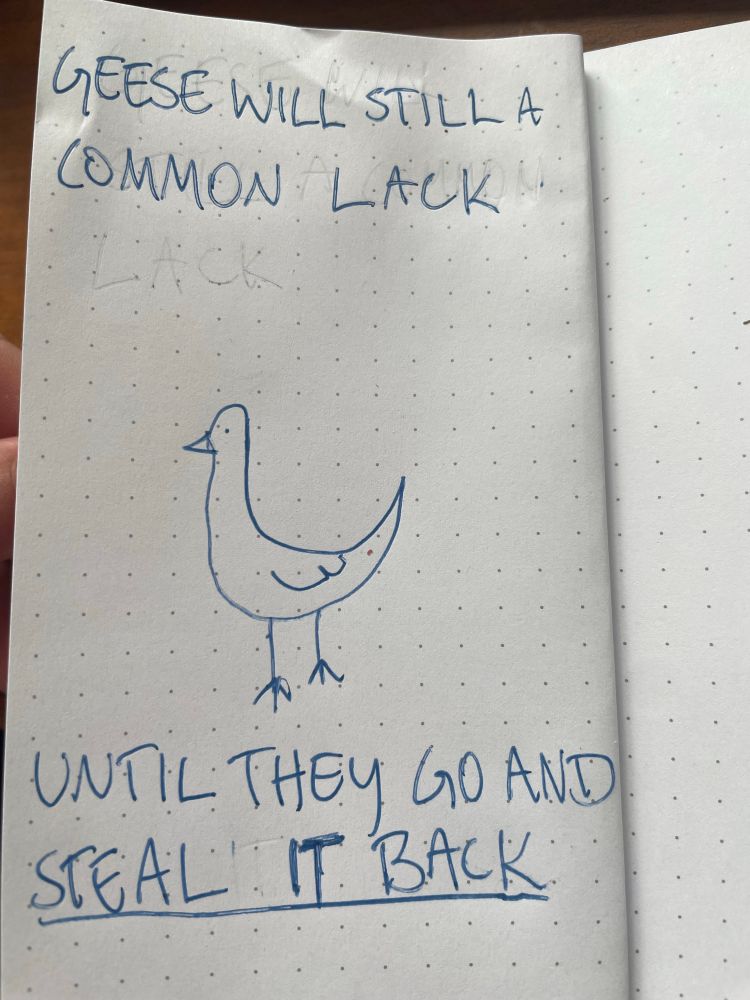 GEESE WILL STILL A
COMMON LACK
UNTIL THEY GO AND
STEAL IT BACK